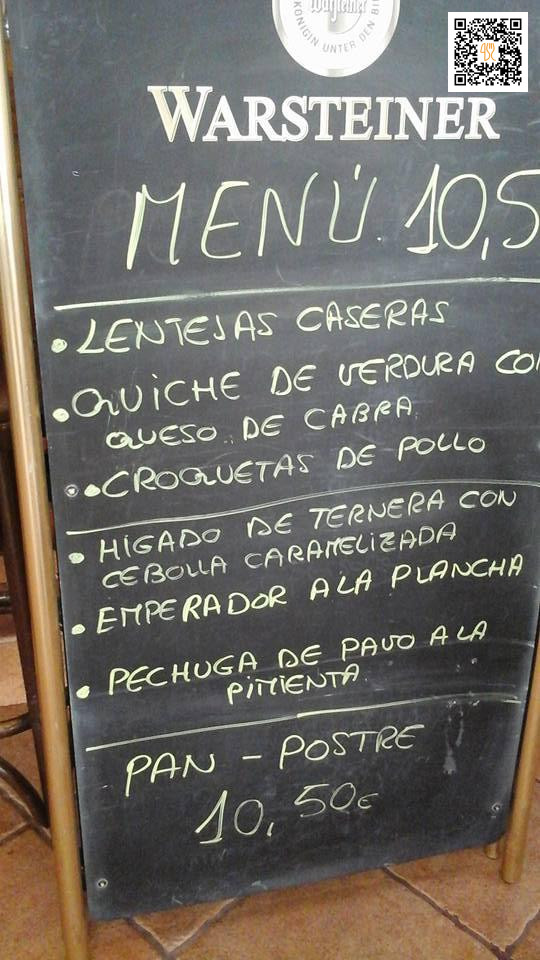 Warsteiner
KÖNIGIN UNTER DEN BI
WARSTEINER
MENÚ. 10,5
• LENTEJAS CASERAS
• QUICHE DE VERDURA CON
QUESO DE CABRA
• CROQUETAS DE POLLO
• HIGADO DE TERNERA CON
CEBOLLA CARAMELIZADA
• EMPERADOR A LA PLANCHA
• PECHUGA DE PAVO A LA
PIMIENTA
PAN - POSTRE
10,50€